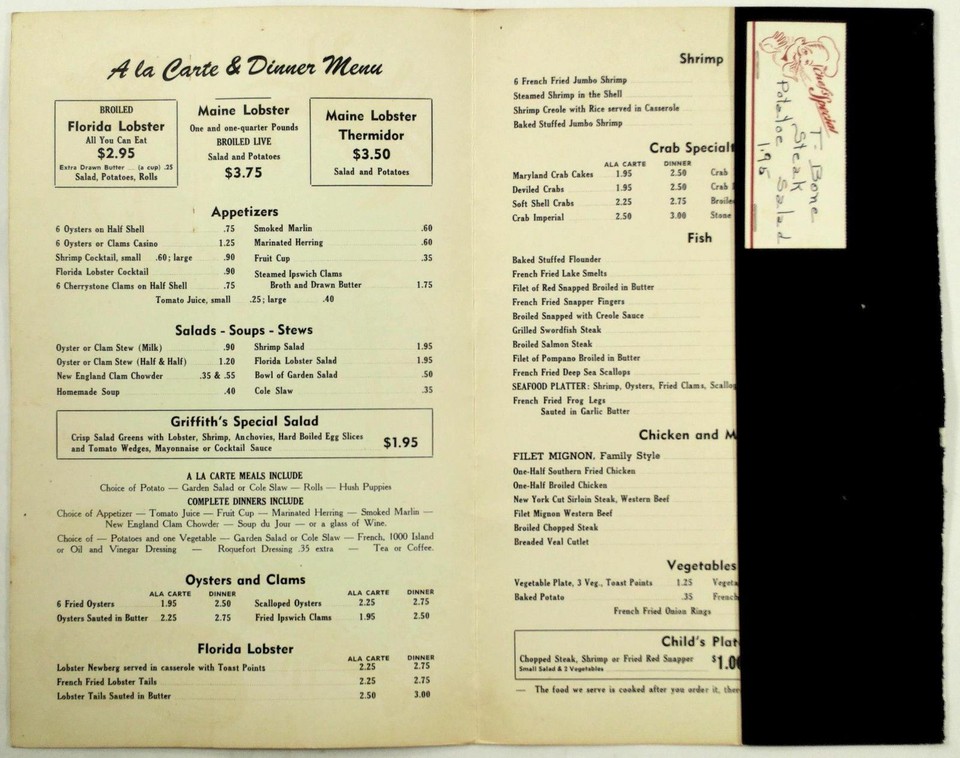 A la Carte & Dinner Menu
BROILED
Florida Lobster
All You Can Eat
$2.95
Extra Drawn Butter ... (a cup) .25
Salad, Potatoes, Rolls
Maine Lobster
One and one-quarter Pounds
BROILED LIVE
Salad and Potatoes
$3.75
Maine Lobster
Thermidor
$3.50
Salad and Potatoes
Appetizers
6 Oysters on Half Shell .75
6 Oysters or Clams Casino 1.25
Shrimp Cocktail, small .60; large .90
Florida Lobster Cocktail .90
6 Cherrystone Clams on Half Shell .75
Smoked Marlin .60
Marinated Herring .60
Fruit Cup .35
Steamed Ipswich Clams
Broth and Drawn Butter 1.75
Tomato Juice, small .25; large .40
Salads - Soups - Stews
Oyster or Clam Stew (Milk) .90
Oyster or Clam Stew (Half & Half) 1.20
New England Clam Chowder .35 & .55
Homemade Soup .40
Shrimp Salad 1.95
Florida Lobster Salad 1.95
Bowl of Garden Salad .50
Cole Slaw .35
Griffith's Special Salad
Crisp Salad Greens with Lobster, Shrimp, Anchovies, Hard Boiled Egg Slices
and Tomato Wedges, Mayonnaise or Cocktail Sauce
$1.95
A LA CARTE MEALS INCLUDE
Choice of Potato — Garden Salad or Cole Slaw — Rolls — Hush Puppies
COMPLETE DINNERS INCLUDE
Choice of Appetizer — Tomato Juice — Fruit Cup — Marinated Herring — Smoked Marlin —
New England Clam Chowder — Soup du Jour — or a glass of Wine.
Choice of — Potatoes and one Vegetable — Garden Salad or Cole Slaw — French, 1000 Island
or Oil and Vinegar Dressing — Roquefort Dressing .35 extra — Tea or Coffee.
Oysters and Clams
ALA CARTE DINNER
6 Fried Oysters 1.95 2.50
Oysters Sauted in Butter 2.25 2.75
ALA CARTE DINNER
Scalloped Oysters 2.25 2.75
Fried Ipswich Clams 1.95 2.50
Florida Lobster
ALA CARTE DINNER
Lobster Newberg served in casserole with Toast Points 2.25 2.75
French Fried Lobster Tails 2.25 2.75
Lobster Tails Sauted in Butter 2.50 3.00
Shrimp
6 French Fried Jumbo Shrimp
Steamed Shrimp in the Shell
Shrimp Creole with Rice served in Casserole
Baked Stuffed Jumbo Shrimp
Crab Specialt
ALA CARTE DINNER
Maryland Crab Cakes 1.95 2.50 Crab
Deviled Crabs 1.95 2.50 Crab
Soft Shell Crabs 2.25 2.75 Broile
Crab Imperial 2.50 3.00 Stone
Fish
Baked Stuffed Flounder
French Fried Lake Smelts
Filet of Red Snapped Broiled in Butter
French Fried Snapper Fingers
Broiled Snapped with Creole Sauce
Grilled Swordfish Steak
Broiled Salmon Steak
Filet of Pompano Broiled in Butter
French Fried Deep Sea Scallops
SEAFOOD PLATTER: Shrimp, Oysters, Fried Clams, Scallop
French Fried Frog Legs
Sauted in Garlic Butter
Chicken and M
FILET MIGNON, Family Style
One-Half Southern Fried Chicken
One-Half Broiled Chicken
New York Cut Sirloin Steak, Western Beef
Filet Mignon Western Beef
Broiled Chopped Steak
Breaded Veal Cutlet
Vegetables
Vegetable Plate, 3 Veg., Toast Points 1.25 Vegeta
Baked Potato .35 French
French Fried Onion Rings
Child's Plat
Chopped Steak, Shrimp or Fried Red Snapper $1.00
Small Salad & 2 Vegetables
— The food we serve is cooked after you order it, ther
Chef Special
T-Bone
Steak
Potatoe Salad
1.95